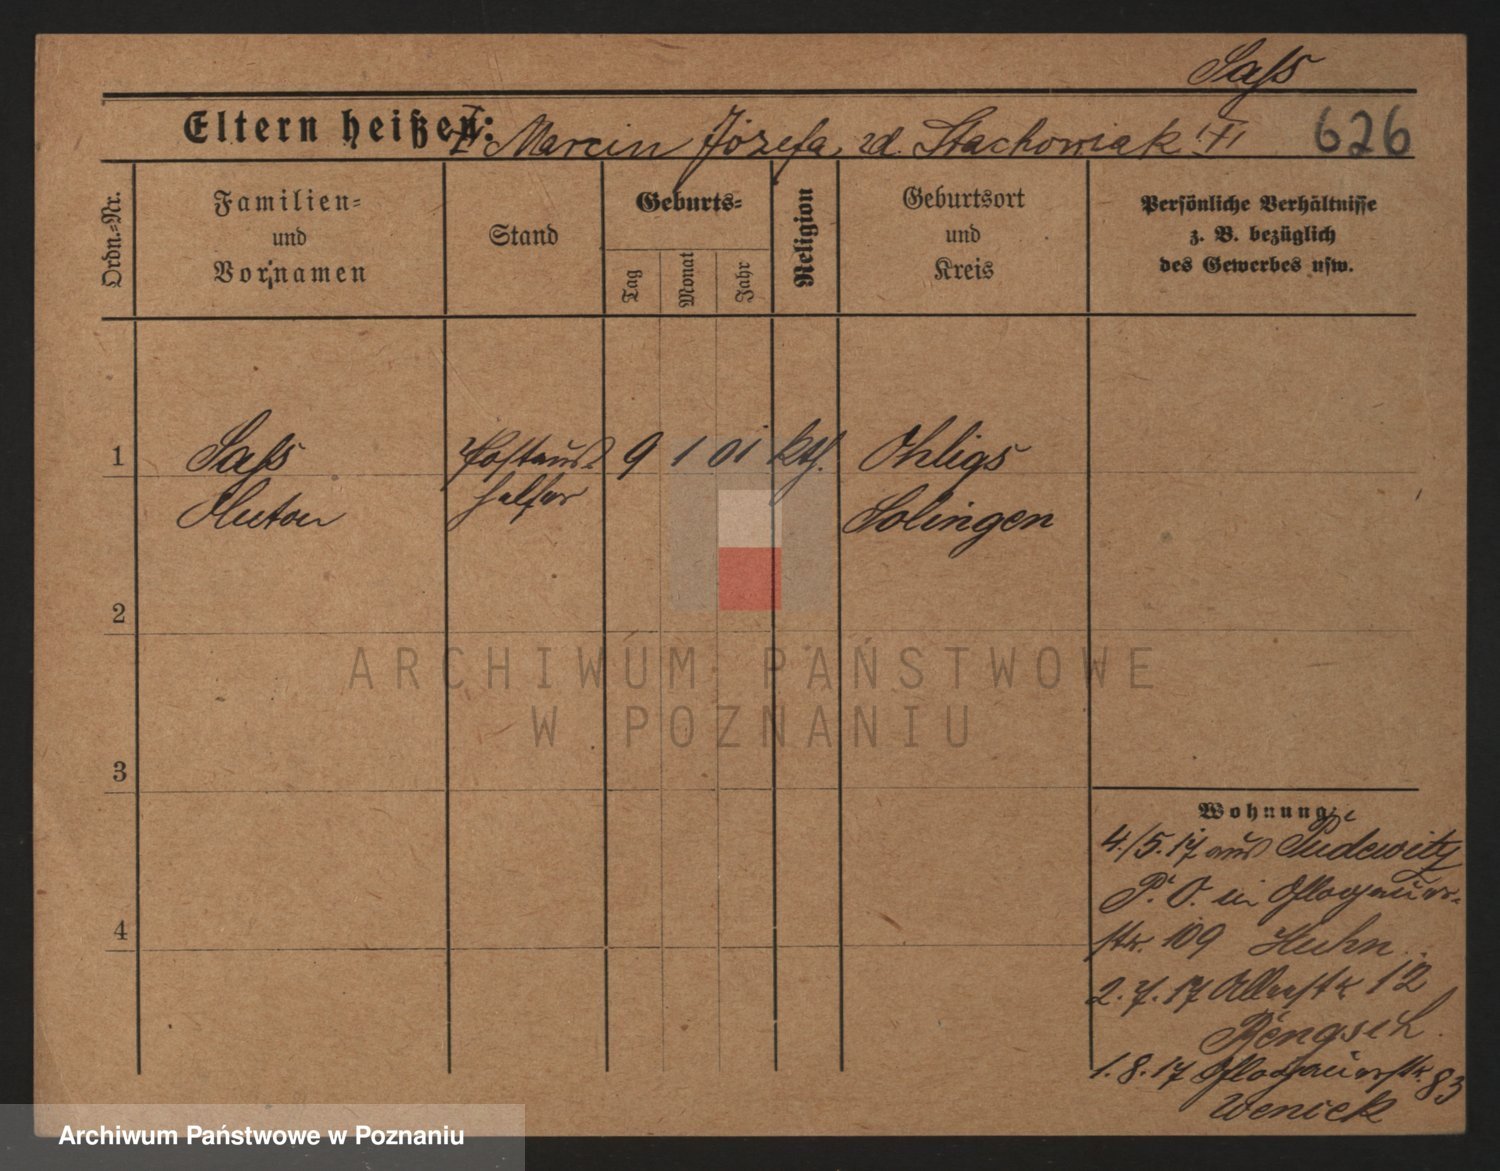 Sass
Eltern heißen: Marcin Józefa zd. Stachowiak
626
Ordn.-Nr.
Familien-
und
Vornamen
Stand
Geburts-
Tag
Monat
Jahr
Religion
Geburtsort
und
Kreis
Persönliche Verhältnisse
z. B. bezüglich
des Gewerbes usw.
1
Sass
Anton
Postaus
helfer
9
1
01
kth.
Ohligs
Solingen
2
3
4
Wohnung:
4./5.17 aus Pudewitz
P. O. in Glogauer-
str. 109 Huhn
2.7.17 12
1.8.17 Glogauerstr. 83
Wenick
ARCHIWUM PAŃSTWOWE
W POZNANIU
Archiwum Państwowe w Poznaniu